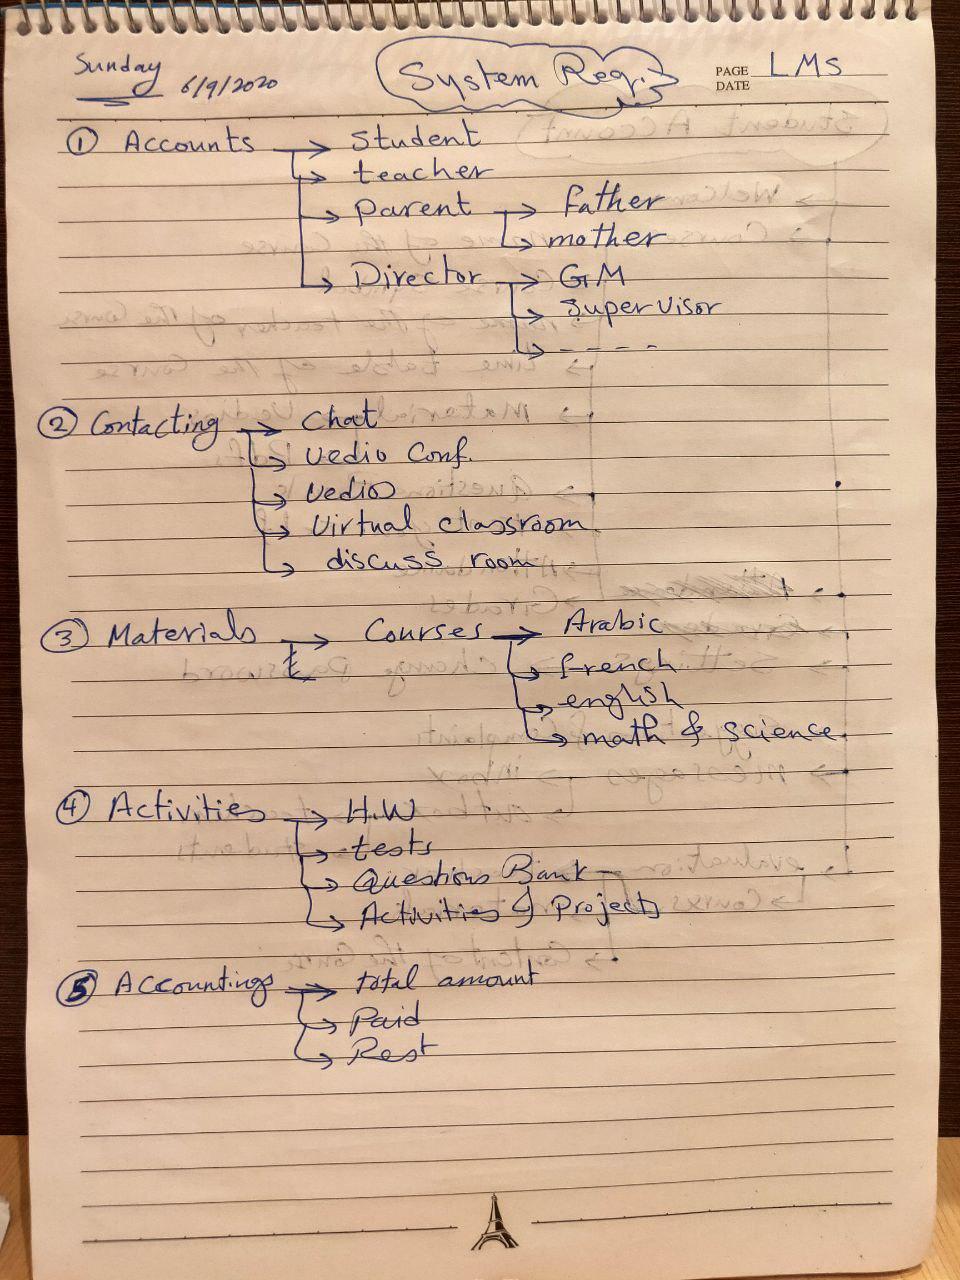 Sunday 6/9/2020 System Req. PAGE LMS
DATE
① Accounts → Student
→ teacher
→ parent → father
→ mother
→ Director → GM
→ Supervisor
→ - - - -
② Contacting → chat
→ vedio Conf.
→ vedios
→ Virtual classroom
→ discuss room
③ Materials → Courses → Arabic
→ french
→ english
→ math & science
④ Activities → H.W
→ tests
→ Questions Bank
→ Activities & Projects
⑤ Accountings → total amount
→ Paid
→ Rest